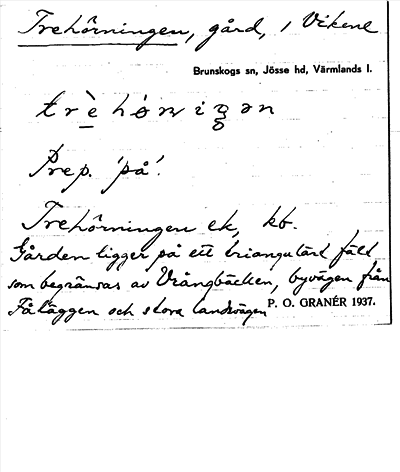 Trehörningen, gård, i Vikene
Brunskogs sn, Jösse hd, Värmlands l.
Prep. 'på'.
Trehörningen ek, kb.
Gården ligger på ett triangulärt fält
som begränsas av Vrångbäcken, byvägen från
Fåläggen och stora landsvägen
P. O. GRANÉR 1937.